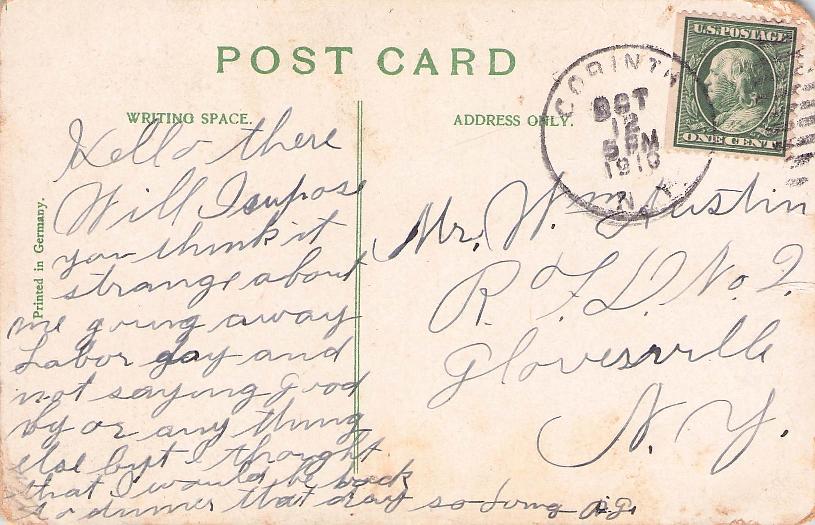 POST CARD
WRITING SPACE.
ADDRESS ONLY.
Printed in Germany.
CORINTH
OCT
12
5 PM
1910
N.Y.
U.S. POSTAGE
ONE CENT
Hello there
Will I supose
you think it
strange about
me going away
Labor day and
not saying good
by or any thing
else but i thought
that I would be back
to dinner that day so long
Mr. Wm Austin
R.F.D. No. 2.
Gloversville
N.Y.